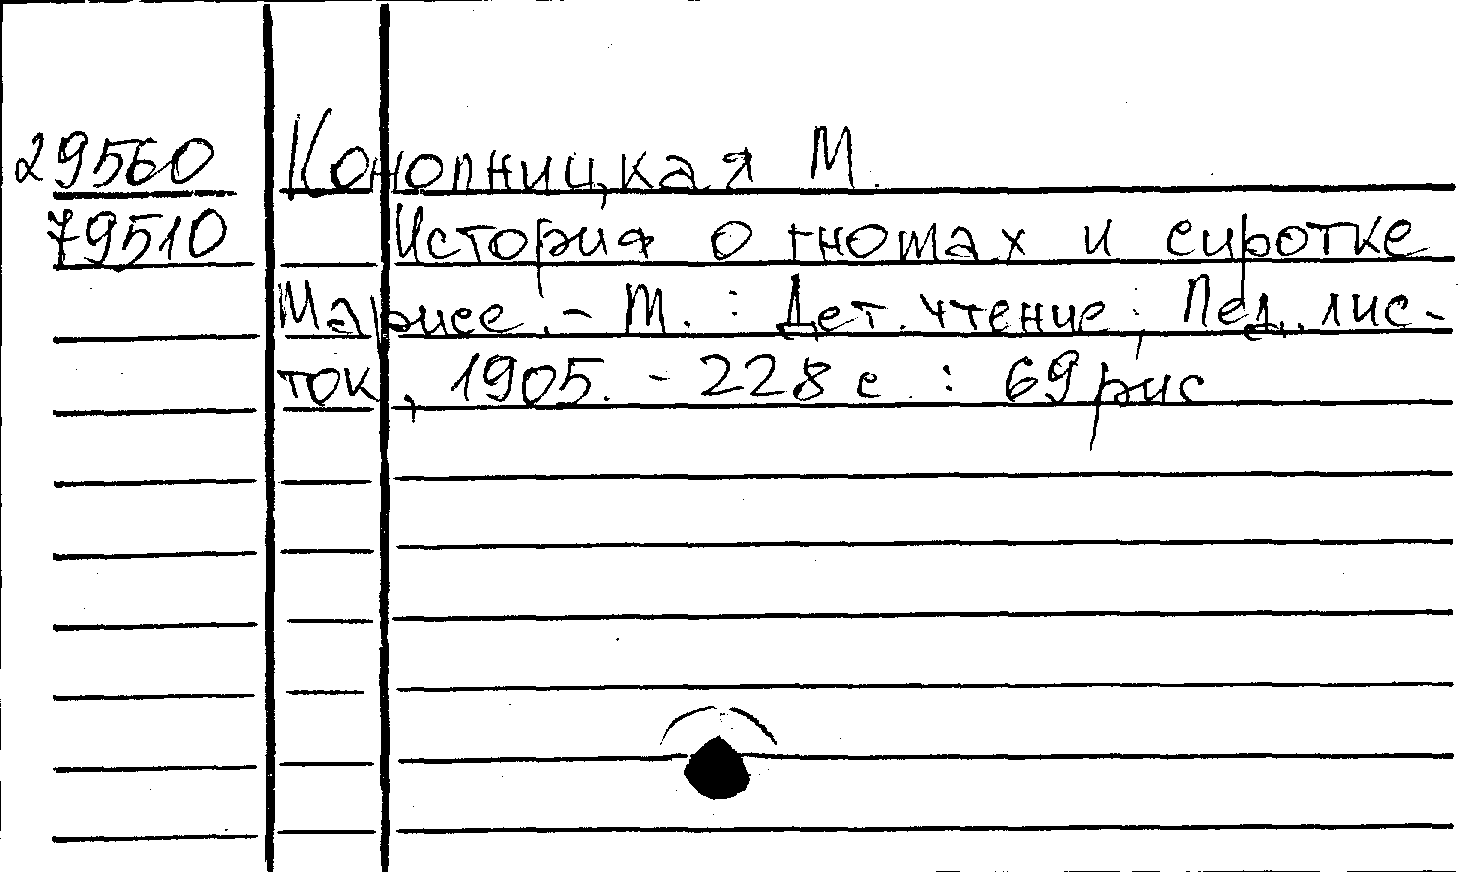 29560 Конопницкая М.
79510 История о гномах и сиротке
Марысе. - М. : Дет. чтение ; Пед. лис-
ток, 1905. - 228 с : 69 рис